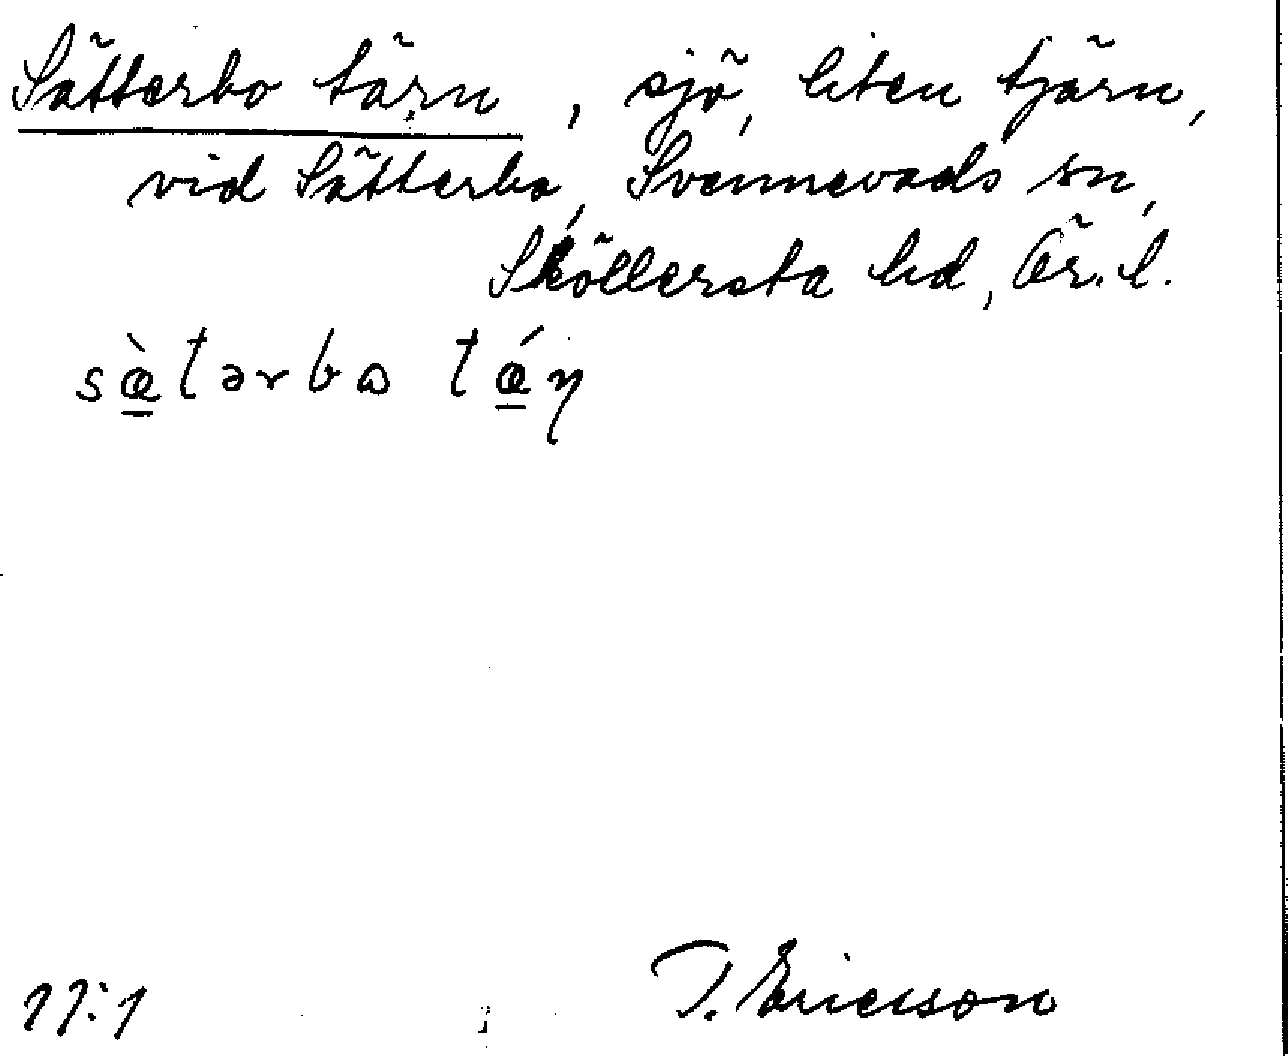 Sätterbo tärn, sjö, liten tjärn,
vid Sätterbo, Svennevads sn,
Sköllersta hd, Ör. l.
sæ̠̀tərbɷ tǽ̠ɳ
17:1 T. Ericsson